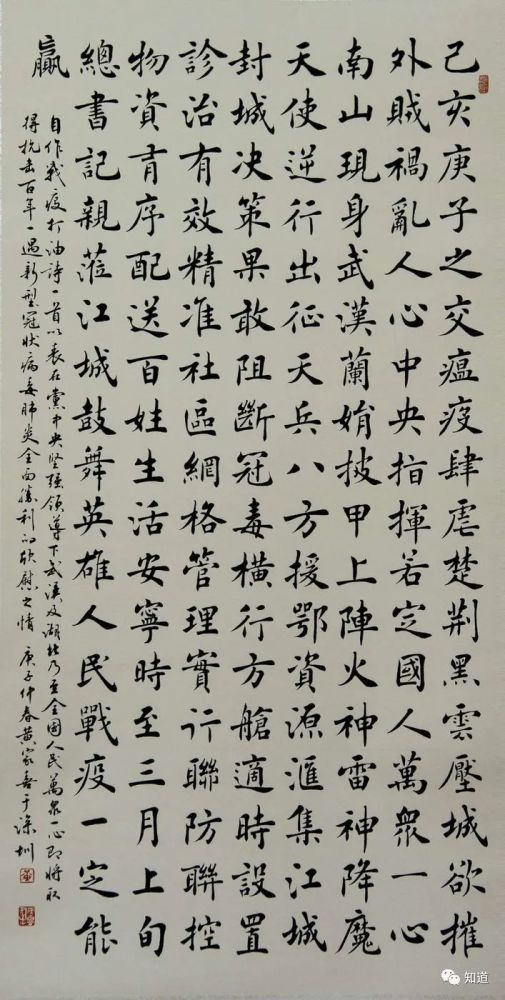 己亥庚子之交瘟疫肆虐楚荆黑雲壓城欲摧
外賊禍亂人心中央指揮若定國人萬衆一心
南山現身武漢蘭娟披甲上陣火神雷神降魔
天使逆行出征天兵八方援鄂資源滙集江城
封城决策果敢阻斷冠毒橫行方艙適時設置
診治有效精准社區網格管理實行聯防聯控
物資有序配送百姓生活安寧時至三月上旬
總書記親蒞江城鼓舞英雄人民戰疫一定能
贏
自作戰疫打油詩一首以表在黨中央坚强領導下武漢及湖北乃至全國人民萬衆一心即將取
得抗击百年一遇新型冠狀病毒肺炎全面勝利的欣慰之情 庚子仲春黄家喜于深圳
知道